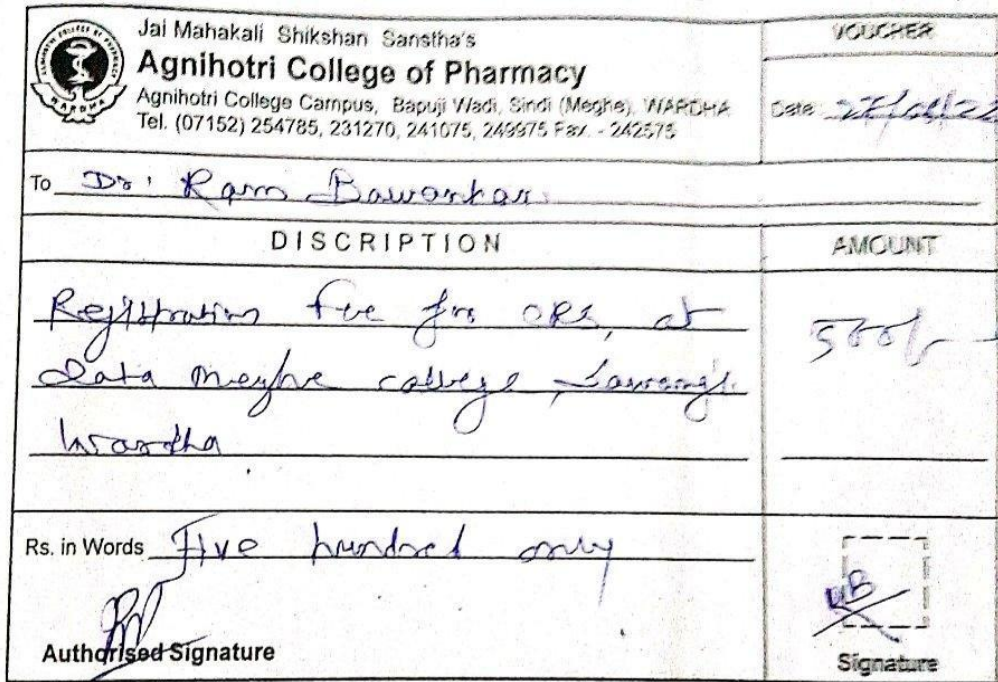 Jai Mahakali Shikshan Sanstha's
Agnihotri College of Pharmacy
Agnihotri College Campus, Bapuji Wadi, Sindi (Meghe), WARDHA
Tel. (07152) 254785, 231270, 241075, 249975 Fax. - 242575
WARDHA
VOUCHER
Date
To Dr. Ram Bawankar
DISCRIPTION
AMOUNT
Registration fee for at
Data Meghe college, Sawangi
Wardha
500/-
Rs. in Words Five hundred only
Authorised Signature
Signature